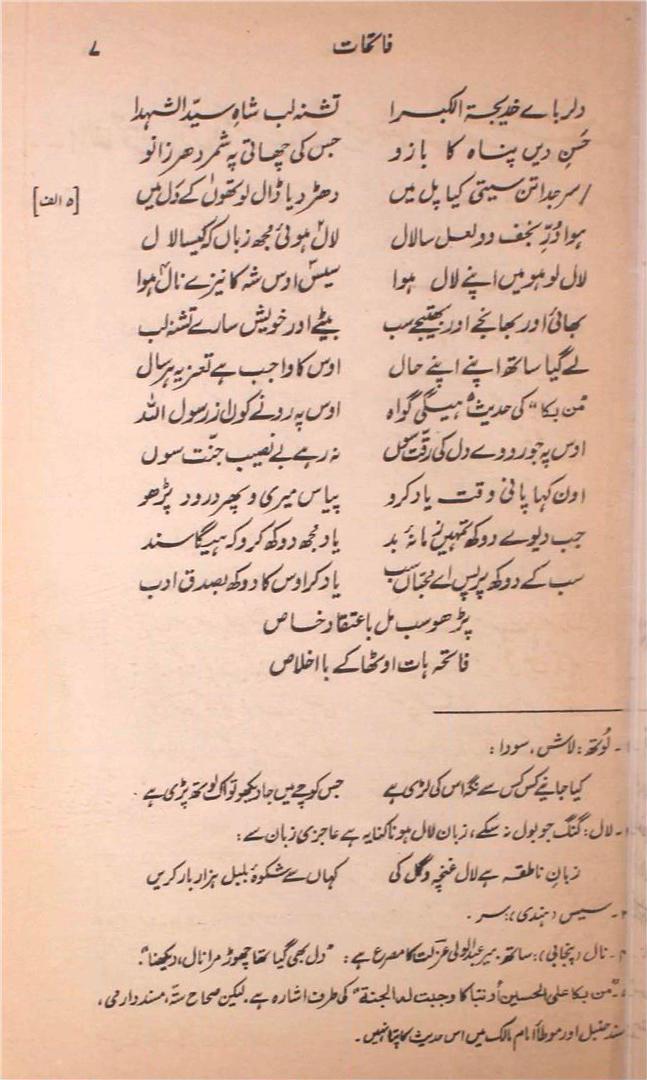 فاتحات ۷
دلربائے خدیجۃ الکبرا تشنہ لب شاہِ سیّد الشہدا
حَسنِ دیں پناہ کا بازو جس کی چھاتی پہ شمر دھر زانو
/ سر جدا تن سیتی کیا پل میں دھڑ دیا ڈال لوتھوں۱ کے دَل میں [۵ الف]
ہوا دُرِّ نجف وو لعل سا لال لال۲ ہوئی مجھ زباں کہ کیسا لال
لال لوہو میں اپنے لال ہوا سیس۳ اوس شہ کا نیزے نال۴ ہوا
بھائی اور بھانجے اور بھتیجے سب بیٹے اور خویش سارے تشنہ لب
لے گیا ساتھ اپنے اپنے حال اوس کا واجب ہے تعزیہ ہر سال
"من بکا" کی حدیث۵ ہیگی گواہ اوس پہ رونے کوں از رسول اللہ
اوس پہ جو رووے دل کی رقّت سوں نہ رہے بے نصیب جنّت سوں
اون کہا پانی وقت یاد کرو پیاس میری و پھر درود پڑھو
جب دیوے دوکھ تمہیں زمانۂ بد یاد مجھ دوکھ کرو کہ ہیگا سند
سب کے دوکھ پر پس اے محبّاں سب یاد کر اوس کا دوکھ بصدق ادب
پڑھو سب مل با عتقاد خاص
فاتحہ ہات اوٹھا کے با اخلاص
۔ لُوتھ: لاش، سودا:
کیا جانیے کس کس سے نگہ اس کی لڑی ہے جس کوچے میں جا دیکھو تو اک لوتھ پڑی ہے۔
۔ لال: گنگ جو بول نہ سکے، زبان لال ہونا کنایہ ہے عاجزی زبان سے:
زبانِ ناطقہ ہے لال غنچہ و گل کی کہاں سے شکوۂ بلبل ہزار بار کریں
۔ سیس (ہندی): سر۔
۔ نال (پنجابی): ساتھ۔ میر عبد الولی عزلت کا مصرع ہے: "دل بھی گیا تھا چھوڑ مرا نال، دیکھنا"۔
۔ "من بکا علی الحسین أو تبا کا وجبت لہ الجنۃ" کی طرف اشارہ ہے۔ لیکن صحاح ستّہ، مسند دارمی،
مسند حنبل اور موطأ امام مالک میں اس حدیث کا پتا نہیں۔